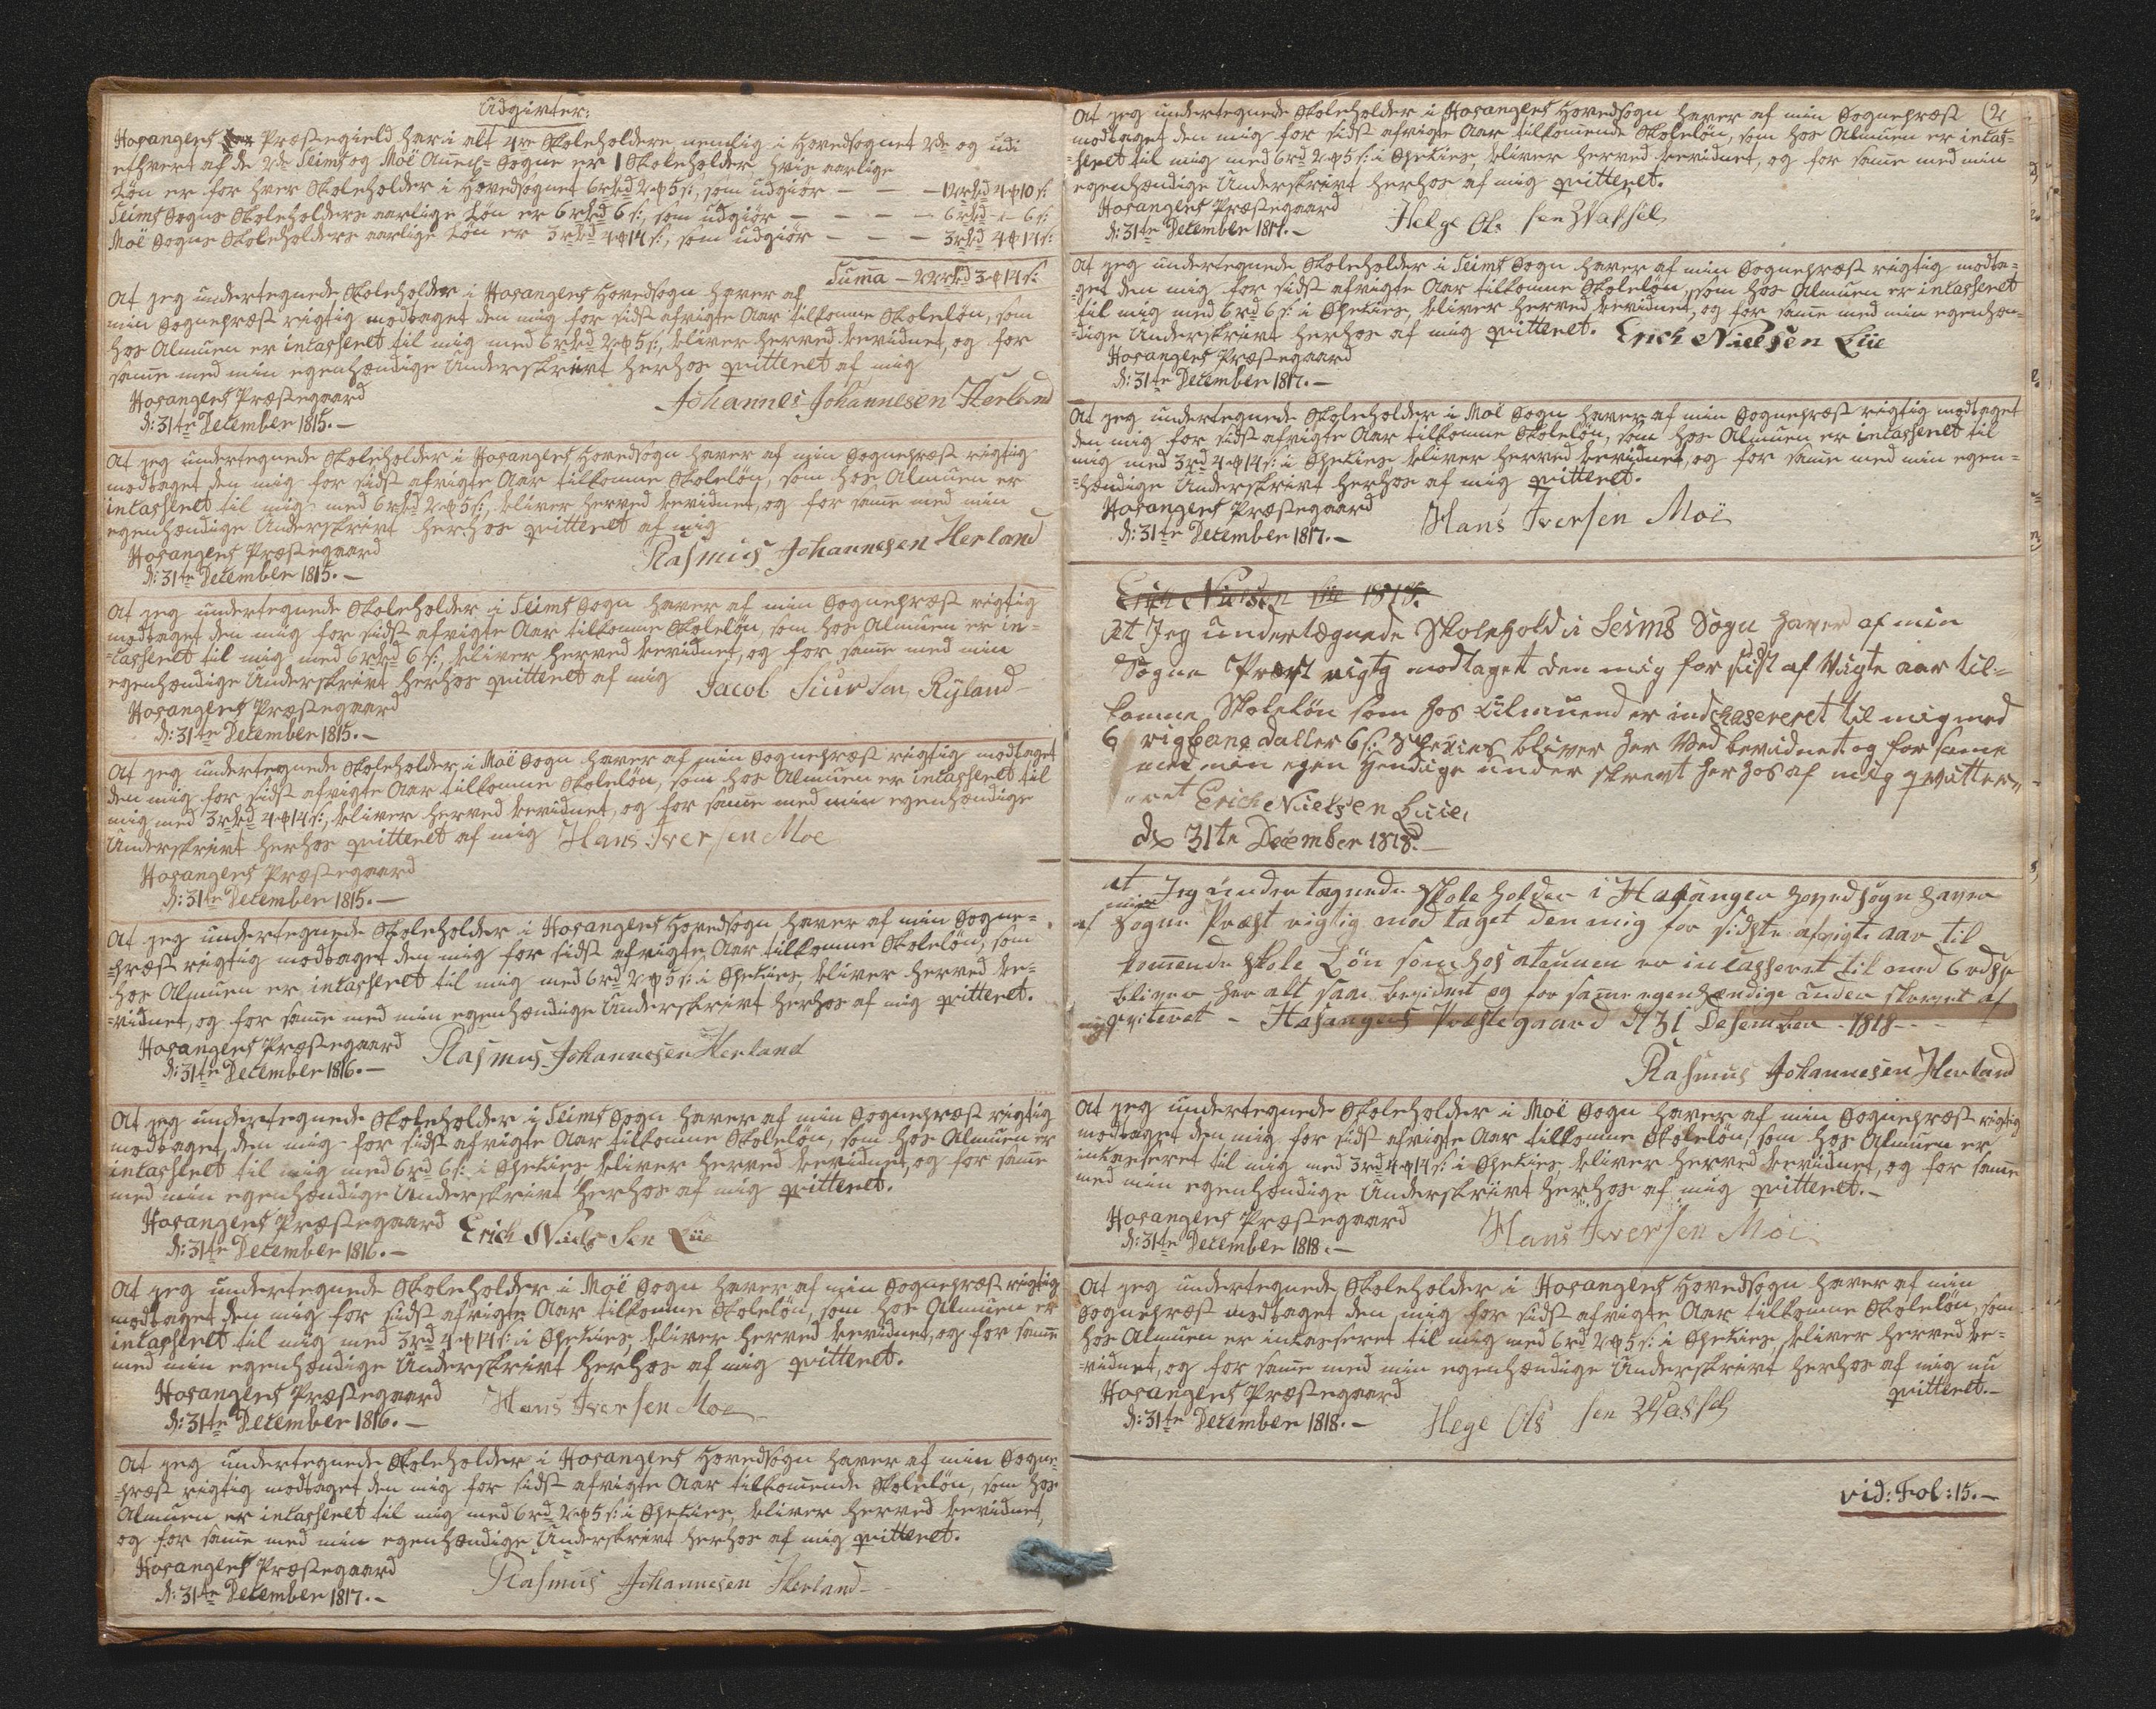 Udgivter:
Hosangers Præstegield har i alt 4re Skoleholdere, nemlig i Hovedsognet 2de og udi
ethvert af de 2de Seims og Moë Annex-Sogne er 1 Skoleholder, hvis aarlige
Løn er for hver Skoleholder i Hovedsognet 6rbd 2 5 s:, som udgiør - - - 12rbd 4 10 s:
Seims Sogns Skoleholders aarlige Løn er 6rbd 6 s:, som udgiør - - - - 6rbd - 6 s:
Moë Sogns Skoleholders aarlige Løn er 3rbd 4 14 s:, som udgiør - - - 3rbd 4 14 s:
Suma - 22rbd 3 14 s:
At jeg undertegnede Skoleholder i Hosangers Hovedsogn haver af
min Sognepræst rigtig modtaget den mig for sidst afvigte Aar tilkomne Skoleløn, som
hos Almuen er incasseret til mig med 6rbd 2 5 s:, bliver herved bevidnet, og for
same med min egenhændige Underskrivt herhos qvitteret af mig
Hosangers Præstegaard
d: 31te December 1815.-
Johannes Johannesen Herland
At jeg undertegnede Skoleholder i Hosangers Hovedsogn haver af min Sognepræst rigtig
modtaget den mig for sidst afvigte Aar tilkomne Skoleløn, som hos Almuen er
incasseret til mig med 6rbd 2 5 s:, bliver herved bevidnet, og for same med min
egenhændige Underskrivt herhos qvitteret af mig
Hosangers Præstegaard
d: 31te December 1815.-
Rasmus Johannesen Herland
At jeg undertegnede Skoleholder i Seims Sogn haver af min Sognepræst rigtig
modtaget den mig for sidst afvigte Aar tilkomne Skoleløn, som hos Almuen er in-
-casseret til mig med 6rbd 6 s:, bliver herved bevidnet, og for same med min
egenhændige Underskrivt herhos qvitteret af mig Jacob Siursen Ryland
Hosangers Præstegaard
d: 31te December 1815.-
At jeg undertegnede Skoleholder i Moë Sogn haver af min Sognepræst rigtig modtaget
den mig for sidst afvigte Aar tilkomne Skoleløn, som hos Almuen er incasseret til
mig med 3rbd 4 14 s:, bliver herved bevidnet, og for same med min egenhændige
Underskrivt herhos qvitteret af mig Hans Iversen Moe
Hosangers Præstegaard
d: 31te December 1815.-
At jeg undertegnede Skoleholder i Hosangers Hovedsogn haver af min Sogne-
-præst rigtig modtaget den mig for sidst afvigte Aar tilkomne Skoleløn, som
hos Almuen er incasseret til mig med 6rd 2 5 s: i Specier, bliver herved be-
-vidnet, og for same med min egenhændige Underskrivt herhos af mig qvitteret.
Hosangers Præstegaard
d: 31te December 1816.-
Rasmus Johannesen Herland
At jeg undertegnede Skoleholder i Seims Sogn haver af min Sognepræst rigtig
modtaget, den mig for sidst afvigte Aar tilkomne Skoleløn, som hos Almuen er
incasseret til mig med 6rd 6 s: i Specier, bliver herved bevidnet, og for same
med min egenhændige Underskrivt herhos af mig qvitteret.
Hosangers Præstegaard Erich Nielssen Lüe
d: 31te December 1816.-
At jeg undertegnede Skoleholder i Moë Sogn haver af min Sognepræst rigtig
modtaget den mig for sidst afvigte Aar tilkomne Skoleløn, som hos Almuen er
incasseret til mig med 3rd 4 14 s: i Specier, bliver herved bevidnet, og for same
med min egenhændige Underskrivt herhos af mig qvitteret.
Hosangers Præstegaard Hans Iversen Moe
d: 31te December 1816.-
At jeg undertegnede Skoleholder i Hosangers Hovedsogn haver af min Sogne-
-præst rigtig modtaget den mig for sidst afvigte Aar tilkommende Skoleløn, som hos
Almuen er incasseret til mig med 6rd 2 5 s: i Specier, bliver herved bevidnet,
og for same med min egenhændige Underskrivt herhos af mig qvitteret.
Hosangers Præstegaard
d: 31te December 1817.-
Rasmus Johannesen Herland
(2
At jeg undertegnede Skoleholder i Hosangers Hovedsogn haver af min Sognepræst
modtaget den mig for sidst afvigte Aar tilkomende Skoleløn, som hos Almuen er incas-
-seret til mig med 6rd 2 5 s: i Specier, bliver herved bevidnet, og for same med min
egenhændige Underskrivt herhos af mig qvitteret.
Hosangers Præstegaard
d: 31te December 1817.-
Helge Ols sen Wassel
At jeg undertegnede Skoleholder i Seims Sogn haver af min Sognepræst rigtig modta-
-get den mig for sidst afvigte Aar tilkomne Skoleløn, som hos Almuen er incasseret
til mig med 6rd 6 s: i Specier, bliver herved bevidnet, og for same med min egenhæn-
-dige Underskrivt herhos af mig qvitteret. Erich Nielsen Lüe
Hosangers Præstegaard
d: 31te December 1817.-
At jeg undertegnede Skoleholder i Moë Sogn haver af min Sognepræst rigtig modtaget
den mig for sidst afvigte Aar tilkomne Skoleløn, som hos Almuen er incasseret til
mig med 3rd 4 14 s: i Specier bliver herved bevidnet, og for same med min egen-
-hændige Underskrivt herhos af mig qvitteret.
Hosangers Præstegaard
d: 31te December 1817.-
Hans Iversen Moë
Erich Nielsen Lüe 1818.
At Jeg undertægnede Skolehold i Seims Sogn haver af min
Sogne Præst rigtg modtaget den mig for sidst af Vigte aar til-
komne Skoleløn som hos Almuend er indchasereret til mig med
6 rigbane daller 6 s: Spexies bliver her Ved bevidnet og for same
med min egen hendige under skrevt her hos af mig qvitter,,
,,eret Erich Nielsen Luie,
d 31te December 1818.-
at Jeg under tægnede Skole holder i Hasanger hovedsogn haver
af min Sogne Præst rigtig mod taget den mig for sidste afvigte aar til
komende Skole Løn som hos ateunen er incasseret til med 6 rd sp
bliver her alt saa bevidnet og for same egenhændige under skrevet af
mig qviteret - Hasangers Præstegaard d 31 Desember - 1818 - -
Rasmus Johannesen Herland
At jeg undertegnede Skoleholder i Moë Sogn haver af min Sognepræst rigtig
modtaget den mig for sidst afvigte Aar tilkomne Skoleløn, som hos Almuen er
incasseret til mig med 3rd 4 14 s: i Specier, bliver herved bevidnet, og for same
med min egenhændige Underskrivt herhos af mig qvitteret.-
Hosangers Præstegaard
d: 31te December 1818.-
Hans Iversen Moë
At jeg undertegnede Skoleholder i Hosangers Hovedsogn haver af min
Sognepræst modtaget den mig for sidst afvigte Aar tilkomne Skoleløn, som
hos Almuen er incasseret til mig med 6rd 2 5 s: i Specier, bliver herved be-
-vidnet, og for same med min egenhændige Underskrivt herhos af mig nu
qvitteret.-
Hosangers Præstegaard
d: 31te December 1818.-
Hege Ols sen Wassel
vid: Fol: 15.-